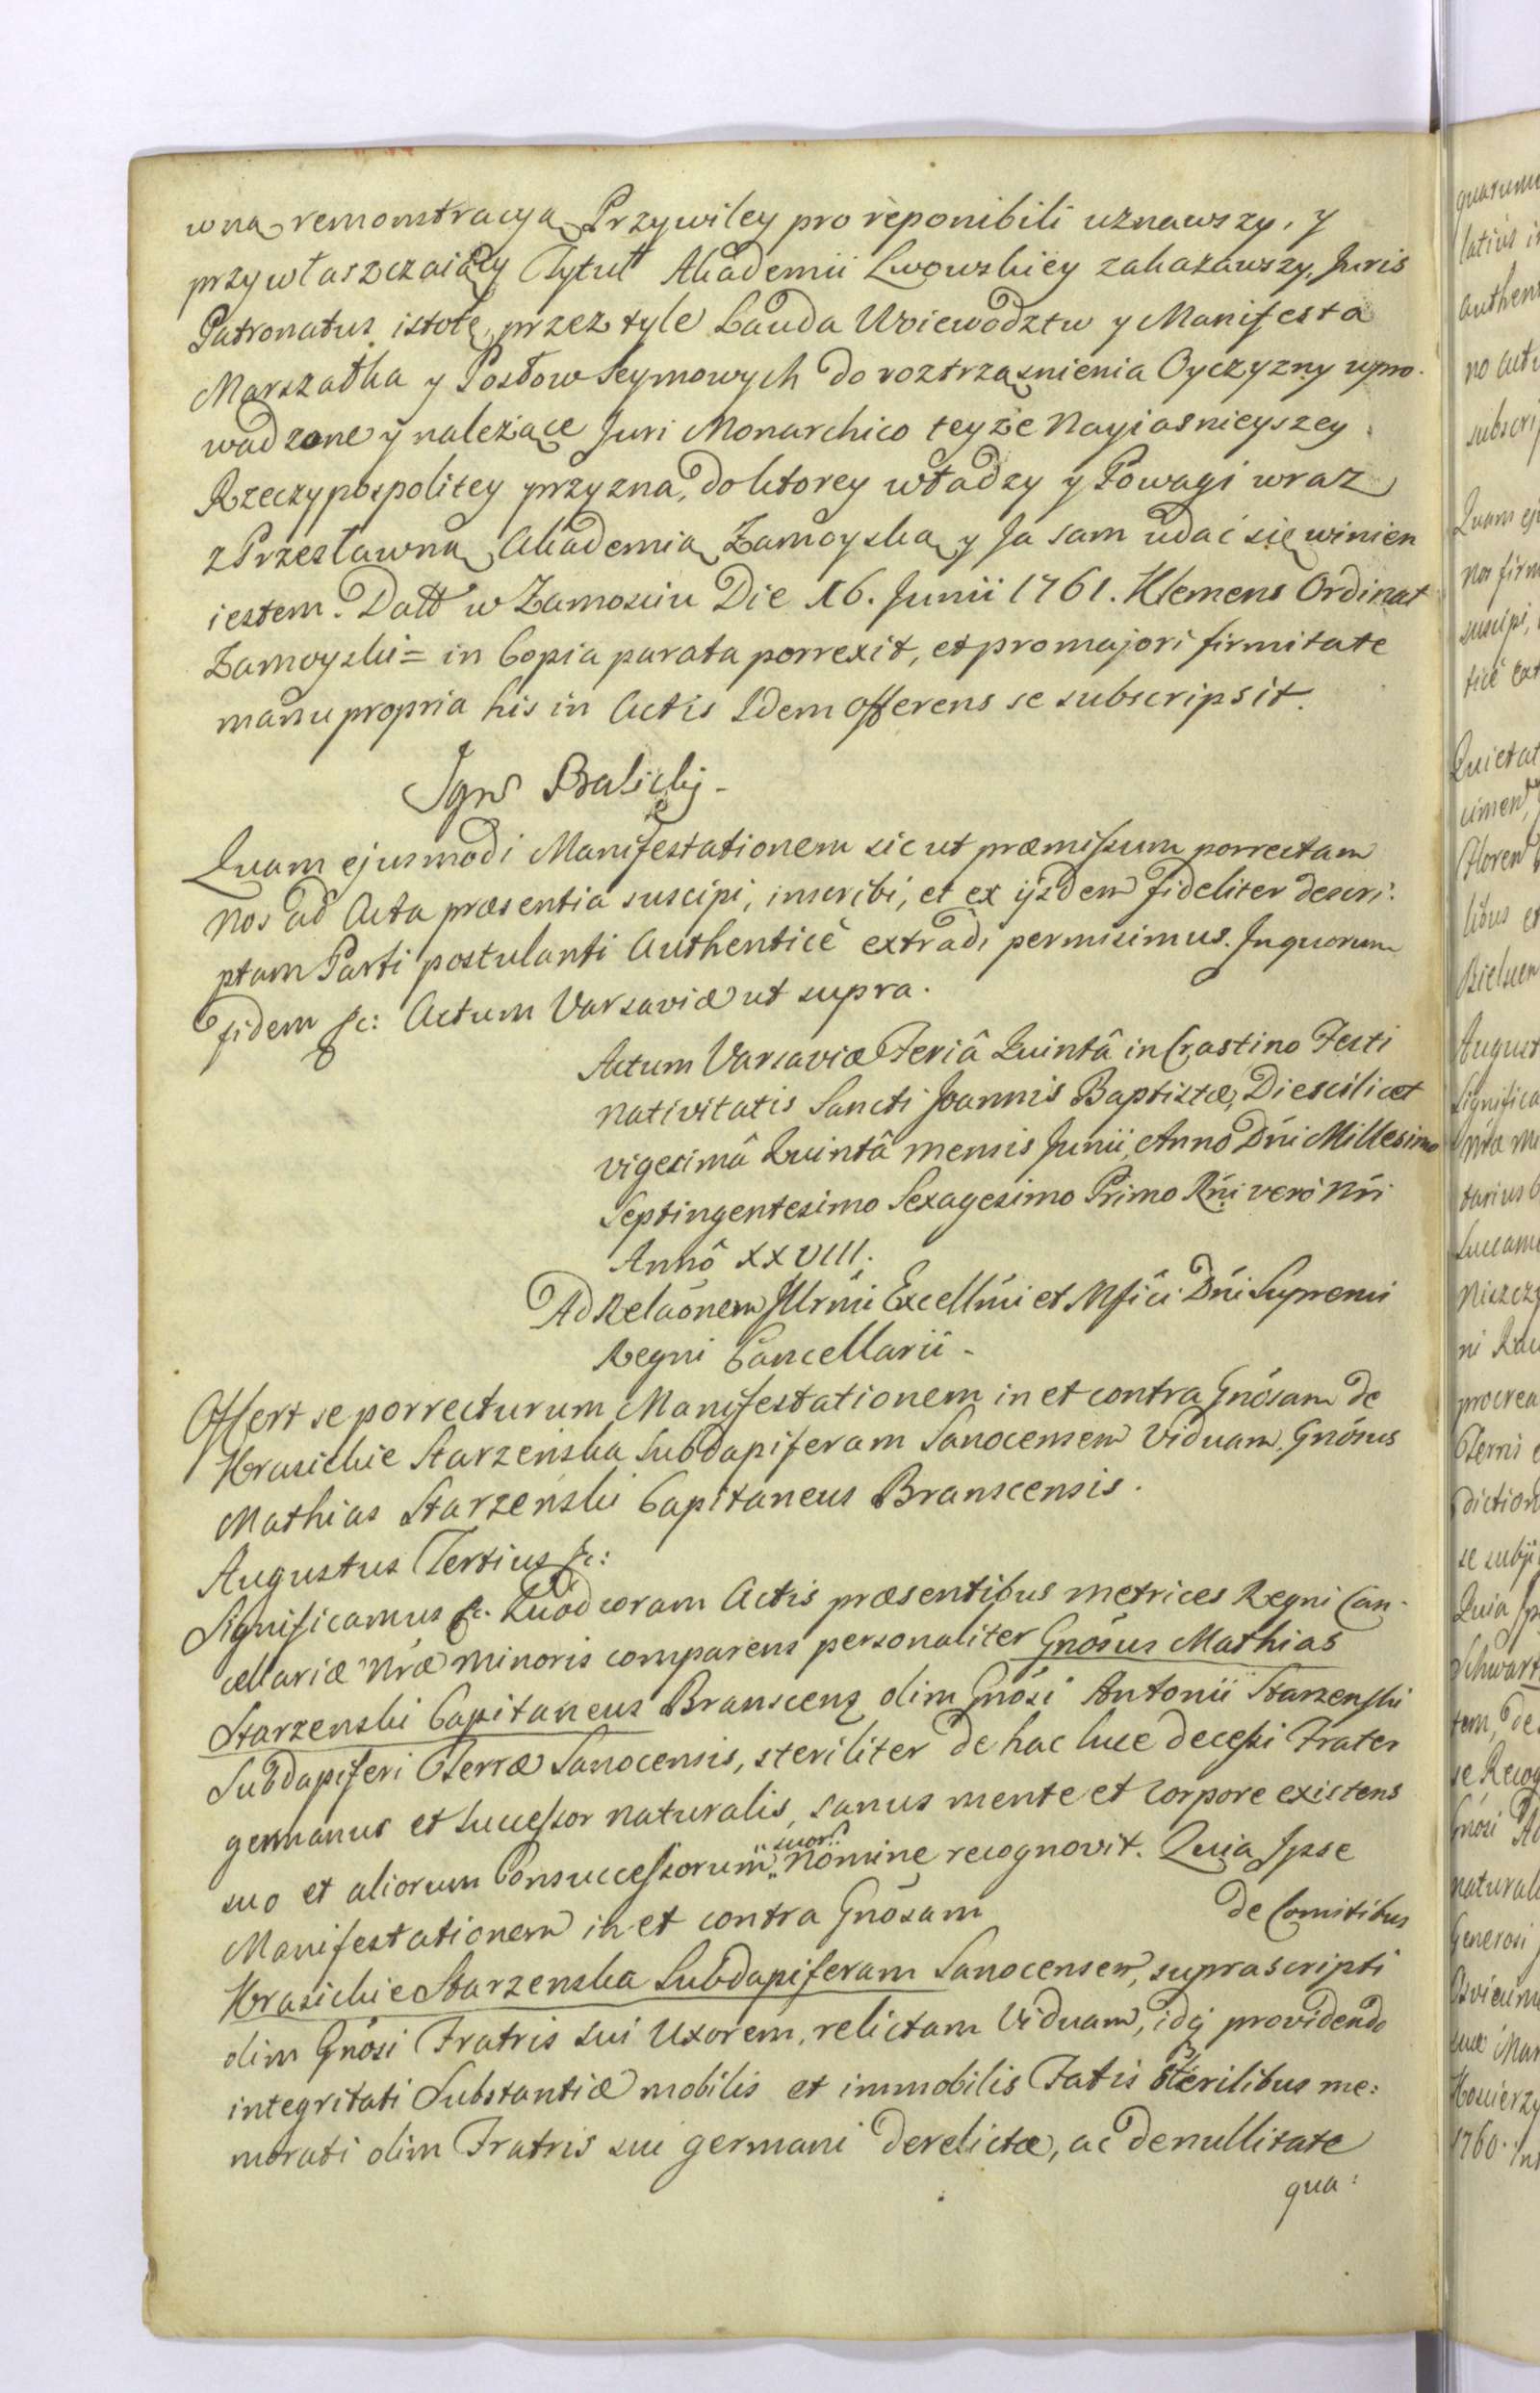 wną remonstracyą Przywiley pro reponibili uznawszy, y
przywłaszczaiący Tytuł Akademii Lwowskiey zakazawszy, Juris
Patronatus istotę przez tyle Lauda Woiewodztw y Manifesta
Marszałka y Posłow Seymowych do roztrząsnienia Oyczyzny wpro-
wadzone y należące Juri Monarchico teyże Nayiasnieyszey
Rzeczypospolitey przyzna, do ktorey władzy y Powagi wraz
z Przesławną Akademią Zamoyską y Ja sam udać się winien
iestem. Datt w Zamościu Die 16. Junii 1761. Klemens Ordinat
Zamoyski = in Copia parata porrexit, et pro majori firmitate
manu propria his in Actis Idem Offerens se subscripsit.
Quam ejusmodi Manifestationem sic ut præmissum porrectam
Nos ad Acta præsentia suscipi, inscribi, et ex ijsdem fideliter descri:
ptam Parti postulanti Authenticè extradi permisimus. In quorum
fidem &c: Actum Varsaviæ ut supra.
Actum Varsaviæ Feriâ Quintâ in Crastino Festi
Nativitatis Sancti Joannis Baptistæ, Die scilicet
vigesimâ Quintâ mensis Junii, Anno Dni Millesimo
Septingentesimo Sexagesimo Primo Rni verò Nri
Annô XXVIII.
Ad Relaõnem Illrmi Excellmi et Mfici Dni Supremi
Regni Cancellarii -
Offert se porrecturum Manifestationem in et contra Gnõsam de
Krasickie Starzeńska Subdapiferam Sanocensem Viduam, Gnõsus
Mathias Starzeński Capitaneus Branscensis.
Augustus Tertius &c:
Significamus &c. Quod coram Actis præsentibus metrices Regni Can-
cellariæ Nræ Minoris comparens personaliter Gnõsus Mathias
Starzenski Capitaneus Branscens olim Gnõsi Antonii Starzenski
Subdapiferi Terræ Sanocensis, steriliter de hac luce decessi Frater
germanus et Successor naturalis, sanus mente et corpore existens
suo et aliorum Consuccessorum „suor" Nomine recognovit. Quia Ipse
Manifestationem in et contra Gnõsam de Comitibus
Krasickie Starzenska Subdapiferam Sanocensem, suprascripti
olim Gnõsi Fratris sui Uxorem, relictam Viduam, idq providendo
integritati Substantiæ mobilis et immobilis Fatis sterilibus me:
morati olim Fratris sui germani derelictæ, ac de nullitate
qua: